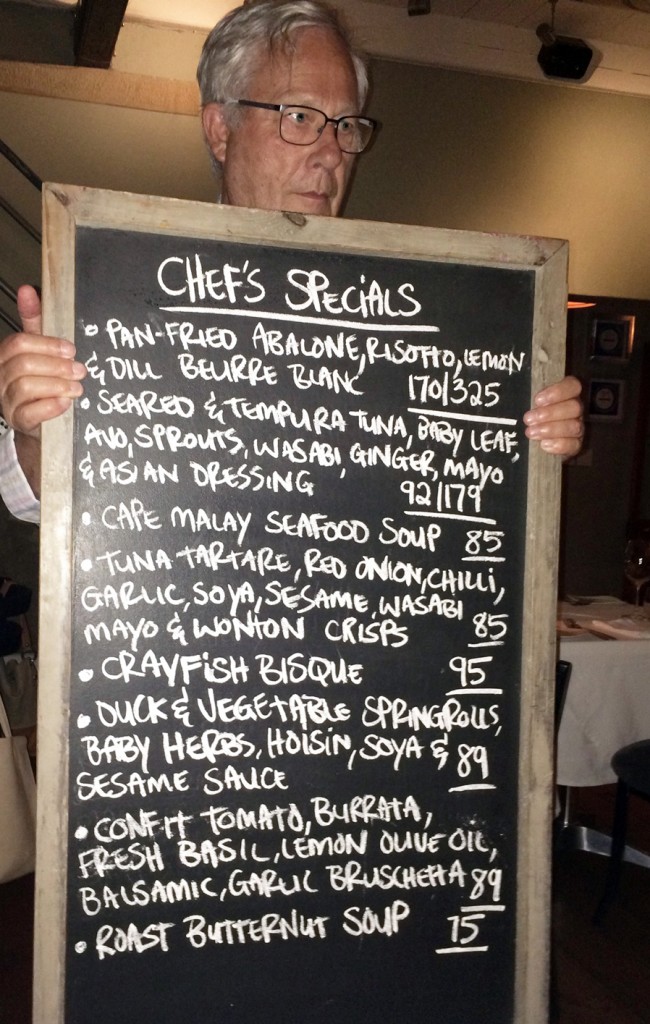 CHEF'S SPECIALS
• PAN-FRIED ABALONE, RISOTTO, LEMON
& DILL BEURRE BLANC 170/325
• SEARED & TEMPURA TUNA, BABY LEAF,
AVO, SPROUTS, WASABI, GINGER, MAYO
& ASIAN DRESSING 92/179
• CAPE MALAY SEAFOOD SOUP 85
• TUNA TARTARE, RED ONION, CHILLI,
GARLIC, SOYA, SESAME, WASABI
MAYO & WONTON CRISPS 85
• CRAYFISH BISQUE 95
• DUCK & VEGETABLE SPRINGROLLS,
BABY HERBS, HOISIN, SOYA &
SESAME SAUCE 89
• CONFIT TOMATO, BURRATA,
FRESH BASIL, LEMON OLIVE OIL,
BALSAMIC, GARLIC BRUSCHETTA 89
• ROAST BUTTERNUT SOUP 75